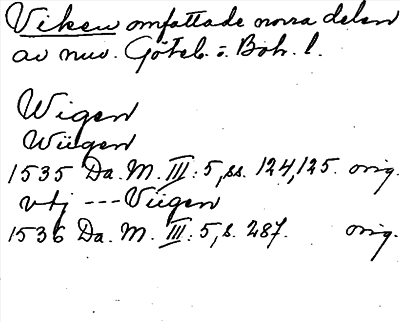 Viken omfattade norra delen
av nuv. Göteb. o. Boh. l.
Wigen
Wiigen
1535 Da. M. III: 5, ss. 124, 125. orig.
vtj --- Viigen
1536 Da. M. III: 5, s. 287. orig.